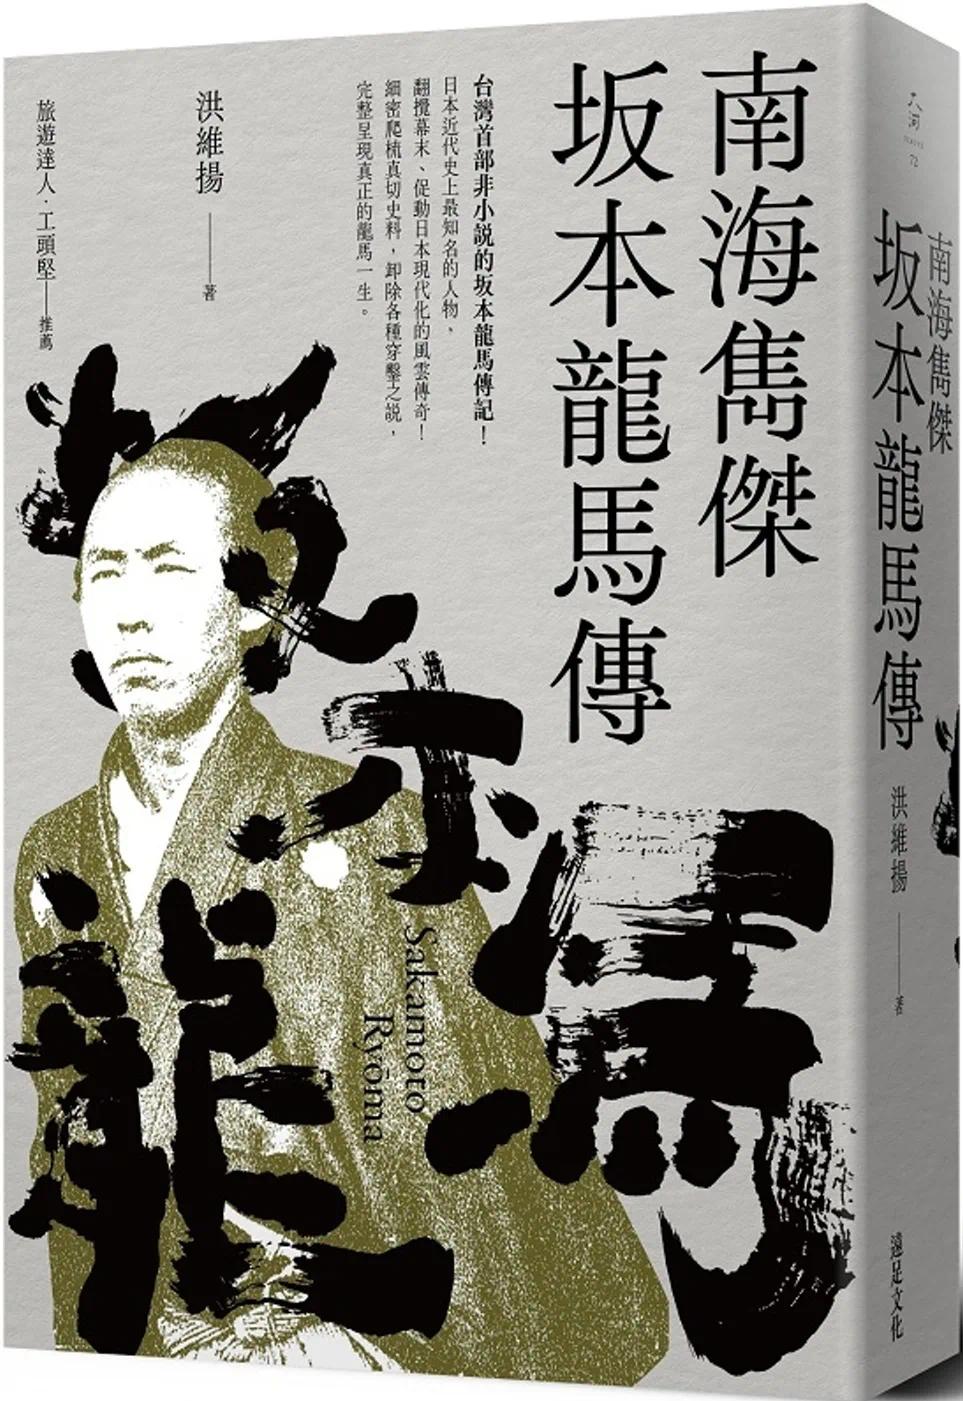 南海雋傑
坂本龍馬傳
台灣首部非小說的坂本龍馬傳記！
日本近代史上最知名的人物，
翻攪幕末、促動日本現代化的風雲傳奇！
細密爬梳真切史料，卸除各種穿鑿之說，
完整呈現真正的龍馬一生。
洪維揚──著
旅遊達人．工頭堅──推薦
坂本龍馬
Sakamoto
Ryōma
大河
72
南海雋傑
坂本龍馬傳
洪維揚──著
遠足文化